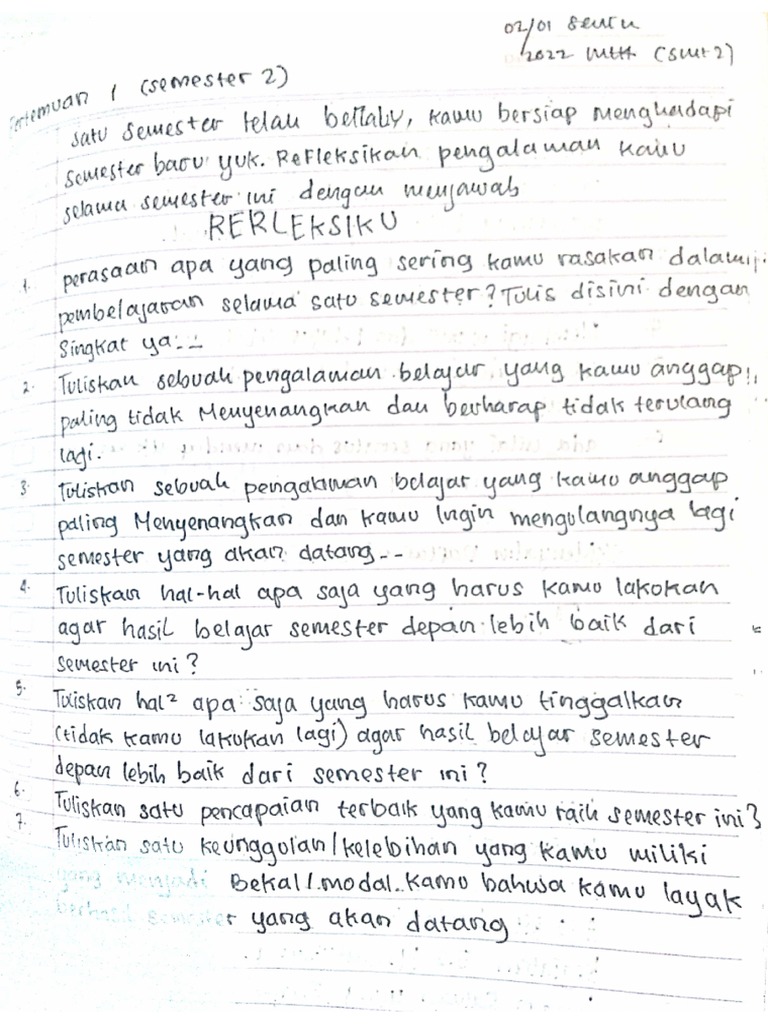 02/01 Senin
2022 MTK (smt 2)
Pertemuan 1 (semester 2)
satu semester telah berlalu, kamu bersiap menghadapi
semester baru yuk. Refleksikan pengalaman kamu
selama semester ini dengan menjawab
RERLEKSIKU
1. perasaan apa yang paling sering kamu rasakan dalam
pembelajaran selama satu semester? Tulis disini dengan
singkat ya...
2. Tuliskan sebuah pengalaman belajar yang kamu anggap
paling tidak Menyenangkan dan berharap tidak terulang
lagi.
3. Tuliskan sebuah pengalaman belajar yang kamu anggap
paling Menyenangkan dan kamu Ingin mengulangnya lagi
semester yang akan datang--
4. Tuliskan hal-hal apa saja yang harus kamu lakokan
agar hasil belajar semester depan lebih baik dari
semester ini?
5. Tuliskan hal² apa saja yang harus kamu tinggalkan
(tidak kamu lakukan lagi) agar hasil belajar semester
depan lebih baik dari semester ini?
6. Tuliskan satu pencapaian terbaik yang kamu raih semester ini?
7. Tuliskan satu keunggulan/kelebihan yang kamu miliki
yang menjadi Bekal/modal kamu bahwa kamu layak
berhasil semester yang akan datang